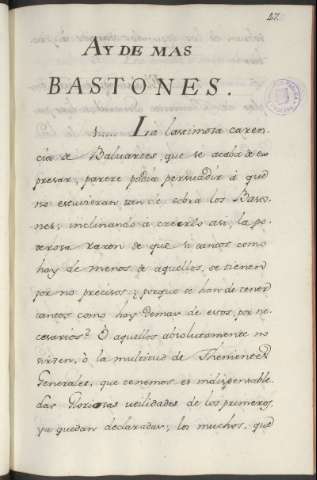 27.
AY DE MAS
BASTONES.
La lastimosa caren-
cia de Baluartes, que se acaba de ex-
presar, parece podia persuadir à que
no estuvieran de sobra los Basto-
nes; inclinando à creerlo asi, la po-
derosa razon de que si tantos como
hay de menos de aquellos, se tienen
por no precisos; porque se han de tener
tantos como hay demas de estos, por ne-
cesarios? O aquellos absolutamente no
sirven, ò la multitud de Thenientes
Generales, que tenemos es indispensable.
Las gloriosas utilidades de los primeros
ya quedan declaradas; los muchos, que